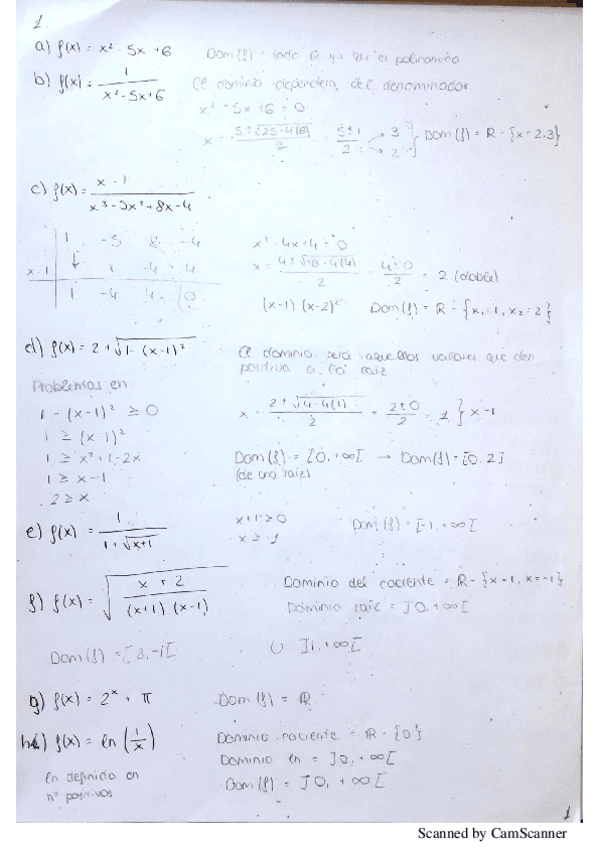 1
a) f(x) = x² - 5x + 6 Dom(f) = todo R ya que es polinomio
b) f(x) = 1 / (x² - 5x + 6) El dominio dependerá del denominador
x² - 5x + 6 = 0
x = (5 ± √(25 - 4(6))) / 2 = (5 ± 1) / 2 → 3 → 2 } Dom(f) = R - {x = 2, 3}
c) f(x) = (x - 1) / (x³ - 5x² + 8x - 4)
1 -5 8 -4
x-1 ↓ 1 -4 4
1 -4 4 0
x² - 4x + 4 = 0
x = (4 ± √(16 - 4(4))) / 2 = (4 ± 0) / 2 = 2 (doble)
(x-1) (x-2)² Dom(f) = R - {x₁ = 1, x₂ = 2}
d) f(x) = 2 + √(1 - (x-1)²) El dominio será aquellos valores que den
positiva a la raíz
Problemas en
1 - (x-1)² ≥ 0
1 ≥ (x-1)²
1 ≥ x² + 1 - 2x
1 ≥ x - 1
2 ≥ x
x = (2 ± √(4 - 4(1))) / 2 = (2 ± 0) / 2 = 1 } x-1
Dom(f) = [0, +∞[ → Dom(f) = [0, 2]
(de una raíz)
e) f(x) = 1 / (1 + √(x+1)) x + 1 ≥ 0 Dom(f) = [-1, +∞[
x ≥ -1
f) f(x) = √((x + 2) / ((x+1) (x-1))) Dominio del cociente = R - {x = 1, x = -1}
Dominio raíz = ]0, +∞[
Dom(f) = , -1[ ∪ ]1, +∞[
g) f(x) = 2ˣ + π Dom(f) = R
h) f(x) = ln (1/x) Dominio cociente = R - {0}
Dominio ln = ]0, +∞[
ln definido en
nº positivos
Dom(f) = ]0, +∞[
1
Scanned by CamScanner